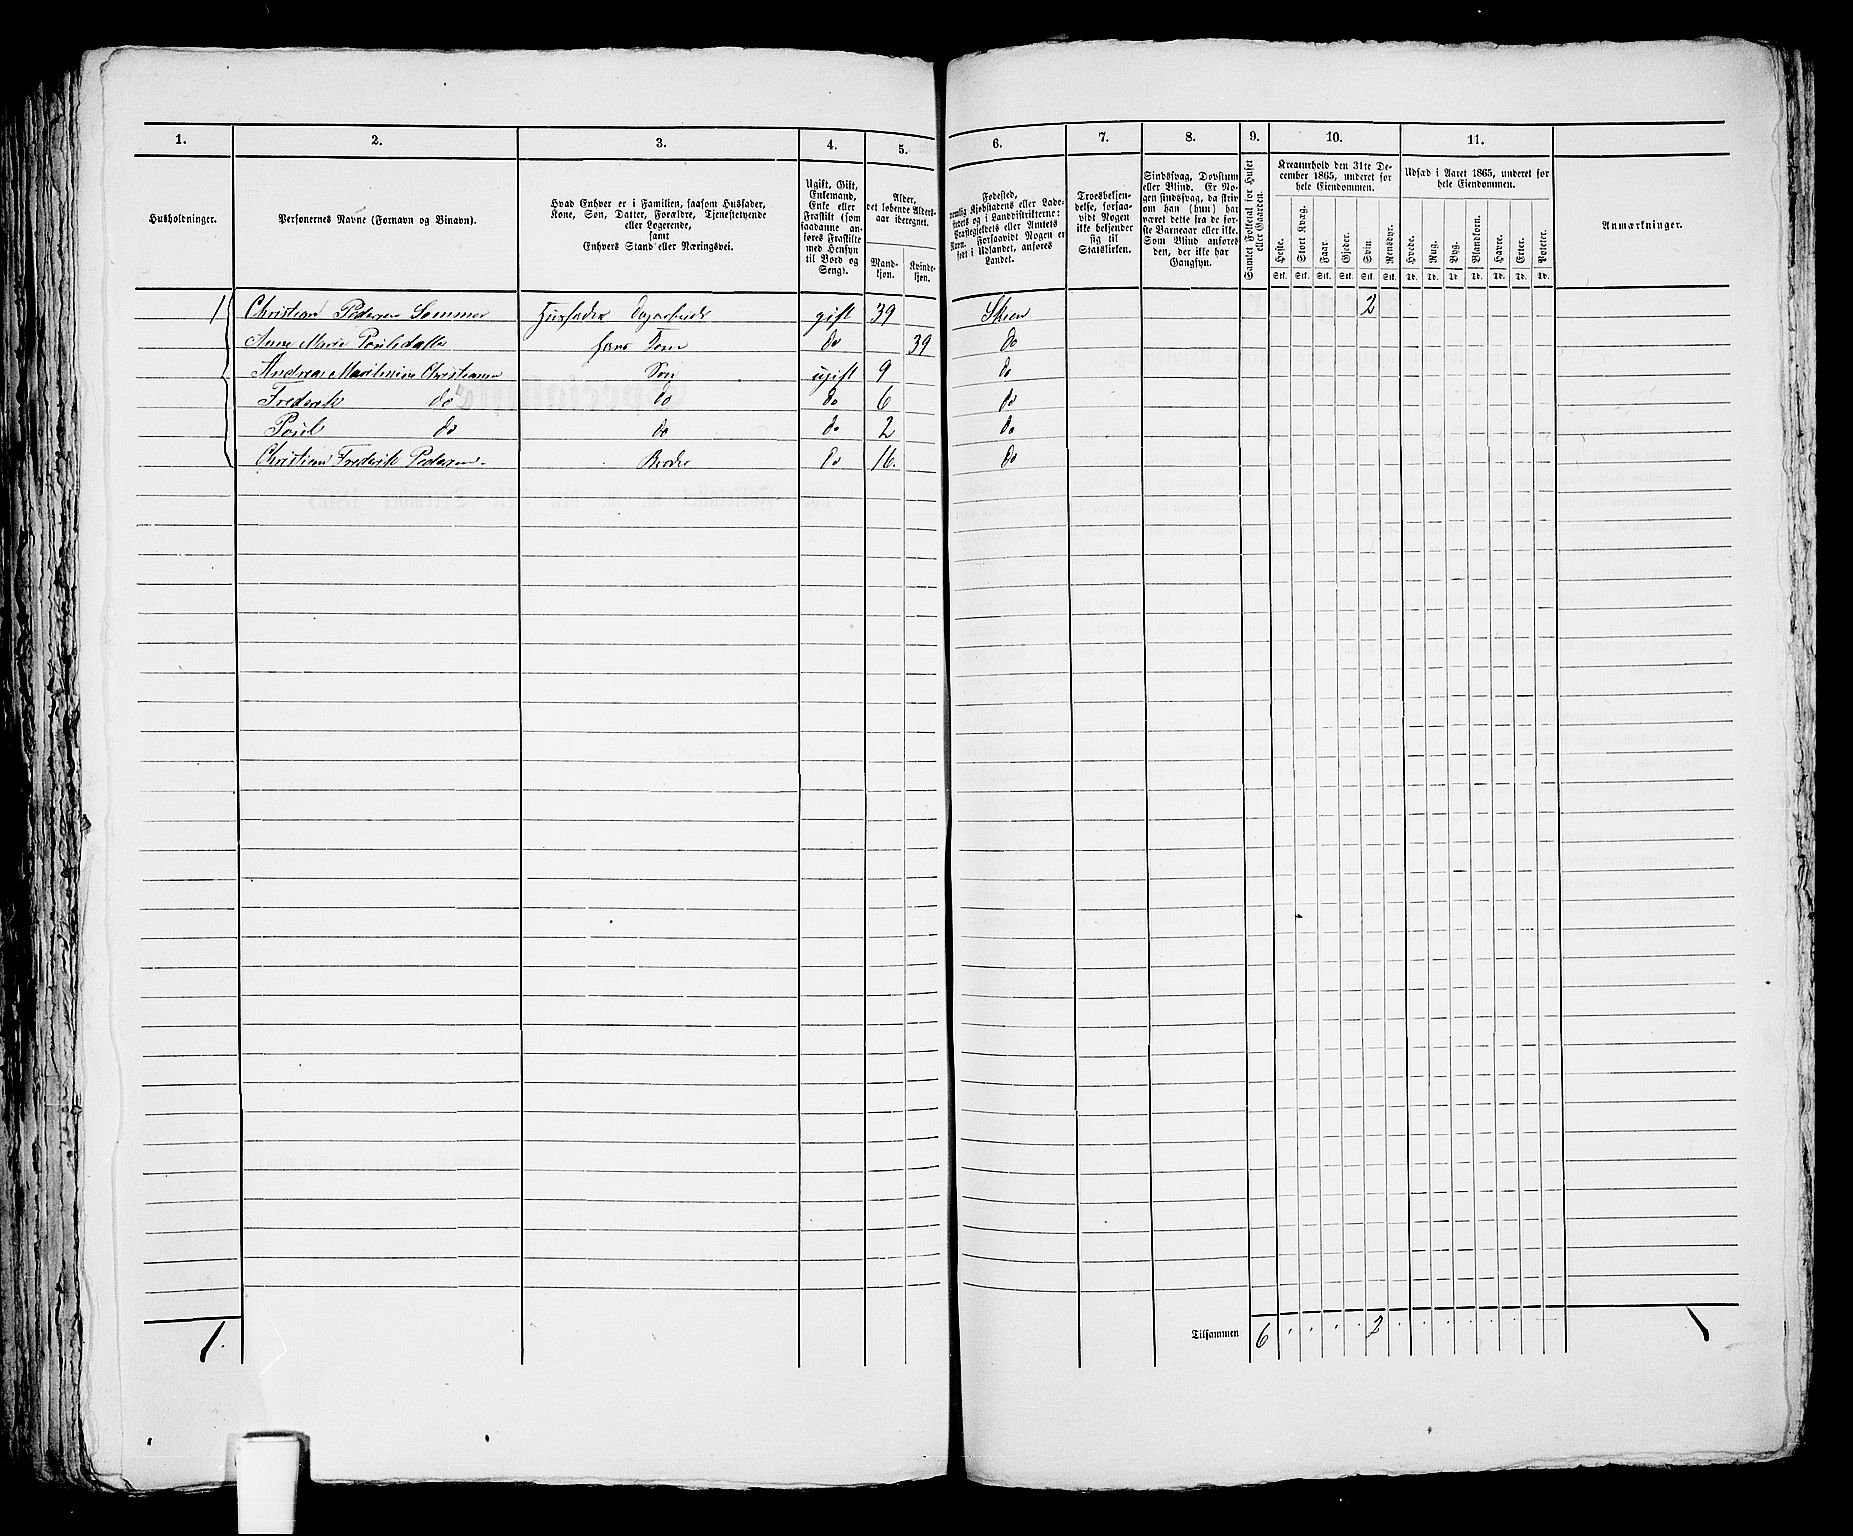 1. 2. 3. 4. 5. 6. 7. 8. 9. 10. 11.
Husholdninger.
Personernes Navne (Fornavn og Binavn).
Hvad Enhver er i Familien, saasom Husfader,
Kone, Søn, Datter, Forældre, Tjenestetyende
eller Logerende,
samt
Enhvers Stand eller Næringsvei.
Ugift, Gift,
Enkemand,
Enke eller
Fraskilt (som
saadanne an-
føres Fraskilte
med Hensyn
til Bord og
Seng).
Alder,
det løbende Alders-
aar iberegnet.
Mand-
kjøn.
Kvinde-
kjøn.
Fødested,
nemlig Kjøbstadens eller Lade-
stedets og i Landdistrikterne:
Præstegjeldets eller Amtets
Navn. Forsaavidt Nogen er
født i Udlandet, anføres
Landet.
Troesbekjen-
delse, forsaa-
vidt Nogen
ikke bekjender
sig til
Statskirken.
Sindssvag, Døvstum
eller Blind. Er No-
gen sindssvag, da skriv
om han (hun) har
været dette fra de før-
ste Barneaar eller ikke.
Som Blind anføres
den, der ikke har
Gangsyn.
Samlet Folketal for Huset
eller Gaarden.
Kreaturhold den 31te De-
cember 1865, underet for
hele Eiendommen.
Heste. Stort Kvæg. Faar. Gjeder. Svin. Rensdyr.
Stk. Stk. Stk. Stk. Stk. Stk.
Udsæd i Aaret 1865, underet for
hele Eiendommen.
Hvede. Rug. Byg. Blandkorn. Havre. Erter. Poteter.
Td. Td. Td. Td. Td. Td. Td.
Anmærkninger.
1 Christian Pedersen Sommer Husfader Dagarbeider gift 39 Skien 2
Anne Marie Poulsdatter hans Kone do 39 do
Andreas Christiansen Søn ugift 9 do
Frederik do do do 6 do
Poul do do do 2 do
Christian Frederik Pedersen Broder do 16. do
1. Tilsammen 6 2